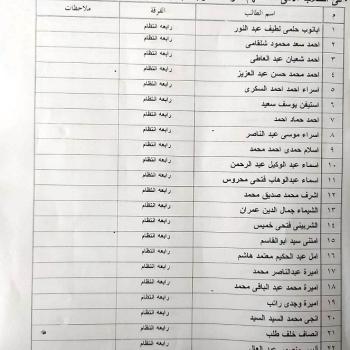 م اسم الطالب الفرقة ملاحظات
١ ابانوب حلمى لطيف عبد النور رابعه انتظام
٢ احمد سعد محمود شلقامى رابعه انتظام
٣ احمد شعبان عبد العاطى رابعه انتظام
٤ احمد محمد حسن عبد العزيز رابعه انتظام
٥ اسراء احمد احمد السكرى رابعه انتظام
٦ استيفن يوسف سعيد رابعه انتظام
٧ احمد حماد احمد رابعه انتظام
٨ اسراء موسى عبد الناصر رابعه انتظام
٩ اسلام حمدى احمد محمد رابعه انتظام
١٠ اسماء عبد الوكيل عبد الرحمن رابعه انتظام
١١ اسماء عبدالوهاب فتحى محروس رابعه انتظام
١٢ اشرف محمد صديق محمد رابعه انتظام
١٣ الشيماء جمال الدين عمران رابعه انتظام
١٤ الشربينى فتحى خميس رابعه انتظام
١٥ امنى سيد ابوالقاسم رابعه انتظام
١٦ امل عبد الحكيم معتمد هاشم رابعه انتظام
١٧ اميرة عبدالناصر محمد رابعه انتظام
١٨ اميرة محمد عبد الباقى محمد رابعه انتظام
١٩ اميرة وجدى راتب رابعه انتظام
٢٠ انجى محمد السيد السيد رابعه انتظام
٢١ انصاف خلف طلب رابعه انتظام
٢٢ رابعه انتظام